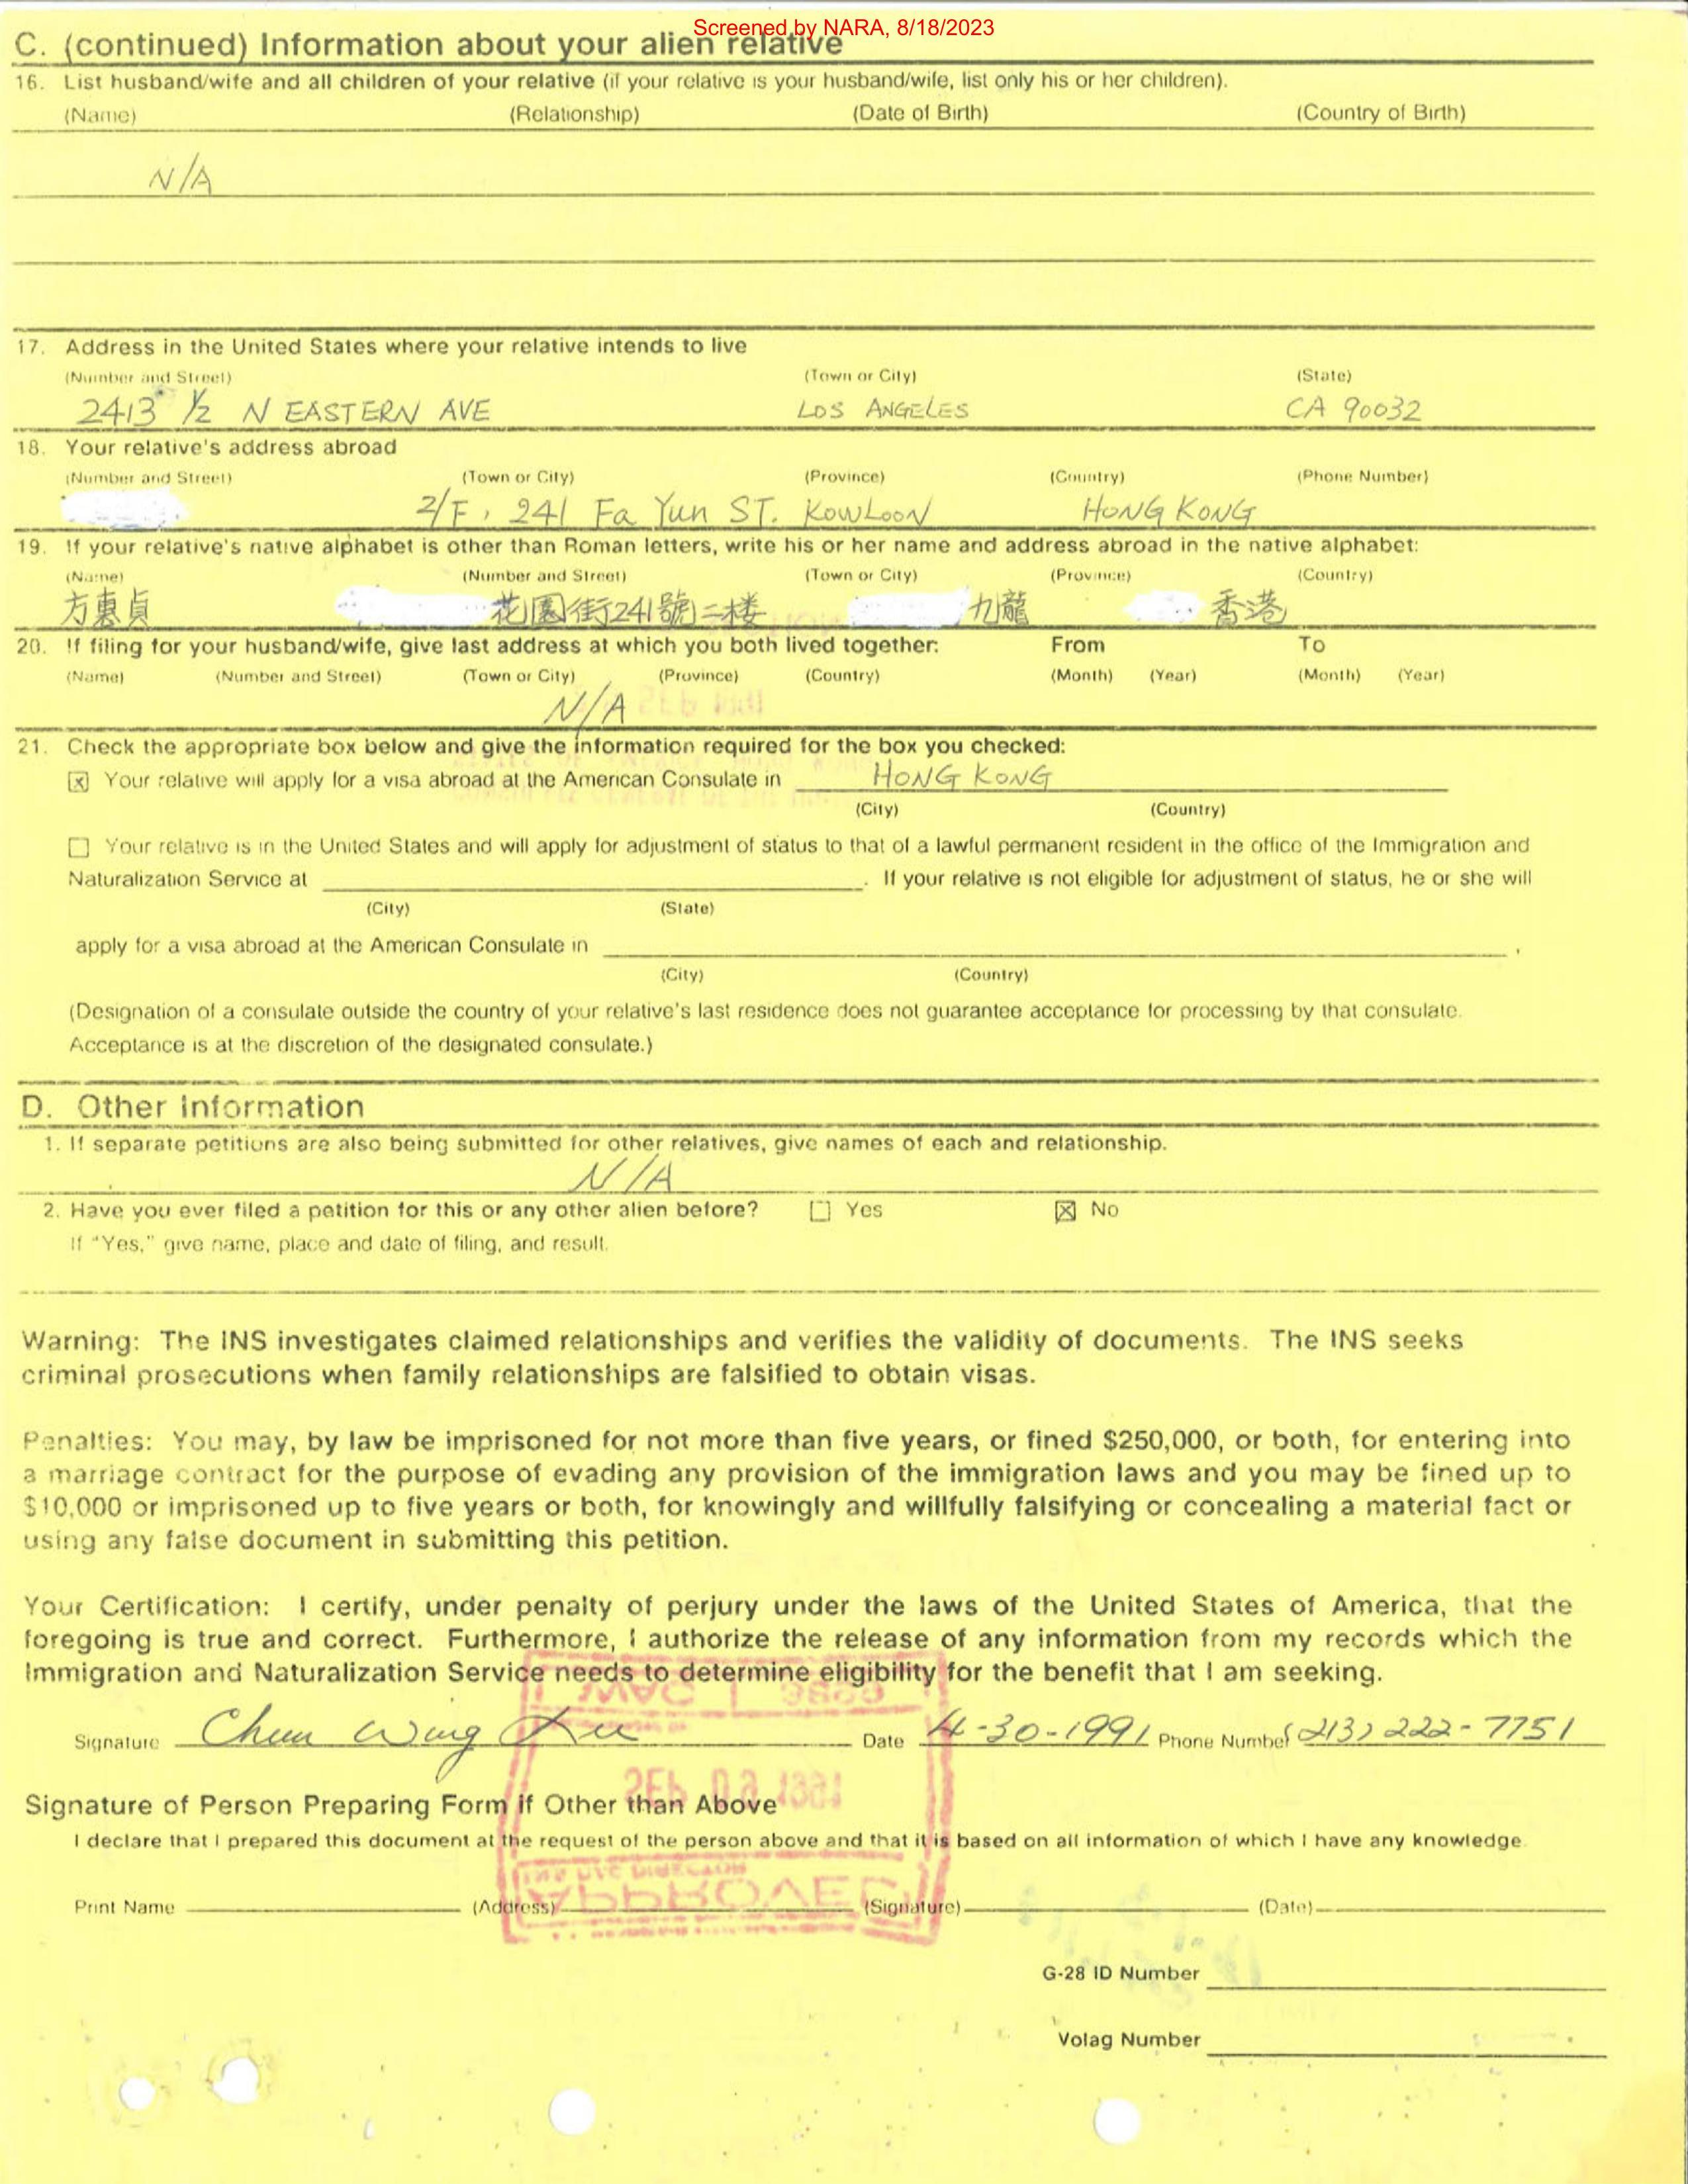 Screened by NARA, 8/18/2023
C. (continued) Information about your alien relative
16. List husband/wife and all children of your relative (if your relative is your husband/wife, list only his or her children).
(Name) (Relationship) (Date of Birth) (Country of Birth)
N/A
17. Address in the United States where your relative intends to live
(Number and Street) (Town or City) (State)
2413 1/2 N EASTERN AVE LOS ANGELES CA 90032
18. Your relative's address abroad
(Number and Street) (Town or City) (Province) (Country) (Phone Number)
2/F, 241 Fa Yun ST. KOWLOON HONG KONG
19. If your relative's native alphabet is other than Roman letters, write his or her name and address abroad in the native alphabet:
(Name) (Number and Street) (Town or City) (Province) (Country)
方惠貞 花園街241號二楼 九龍 香港
20. If filing for your husband/wife, give last address at which you both lived together: From To
(Name) (Number and Street) (Town or City) (Province) (Country) (Month) (Year) (Month) (Year)
N/A
21. Check the appropriate box below and give the information required for the box you checked:
☒ Your relative will apply for a visa abroad at the American Consulate in HONG KONG
(City) (Country)
☐ Your relative is in the United States and will apply for adjustment of status to that of a lawful permanent resident in the office of the Immigration and
Naturalization Service at . If your relative is not eligible for adjustment of status, he or she will
(City) (State)
apply for a visa abroad at the American Consulate in .
(City) (Country)
(Designation of a consulate outside the country of your relative's last residence does not guarantee acceptance for processing by that consulate.
Acceptance is at the discretion of the designated consulate.)
D. Other Information
1. If separate petitions are also being submitted for other relatives, give names of each and relationship.
N/A
2. Have you ever filed a petition for this or any other alien before? ☐ Yes ☒ No
If "Yes," give name, place and date of filing, and result.
Warning: The INS investigates claimed relationships and verifies the validity of documents. The INS seeks
criminal prosecutions when family relationships are falsified to obtain visas.
Penalties: You may, by law be imprisoned for not more than five years, or fined $250,000, or both, for entering into
a marriage contract for the purpose of evading any provision of the immigration laws and you may be fined up to
$10,000 or imprisoned up to five years or both, for knowingly and willfully falsifying or concealing a material fact or
using any false document in submitting this petition.
Your Certification: I certify, under penalty of perjury under the laws of the United States of America, that the
foregoing is true and correct. Furthermore, I authorize the release of any information from my records which the
Immigration and Naturalization Service needs to determine eligibility for the benefit that I am seeking.
Signature Chun Wing Date 4-30-1991 Phone Number (213) 222-7751
SEP 1991
Signature of Person Preparing Form if Other than Above
I declare that I prepared this document at the request of the person above and that it is based on all information of which I have any knowledge.
APPROVED
Print Name (Address) (Signature) (Date)
G-28 ID Number
Volag Number